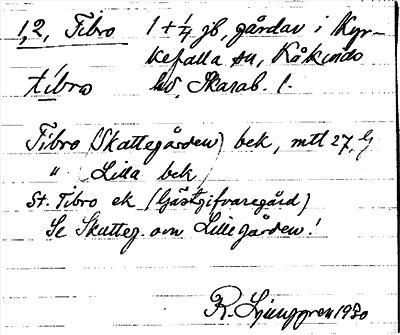 1,2, Tibro 1 + 1/4 jb, gårdar i Kyr-
kefalla sn, Kåkinds
tíbro hd, Skarab. l.
Tibro (Skattegården) bek, mtl 27,
" (Lilla bek)
St. Tibro ek (Gästgifvaregård)
Se Skatteg. om Lillegården!
R. Ljunggren 1930